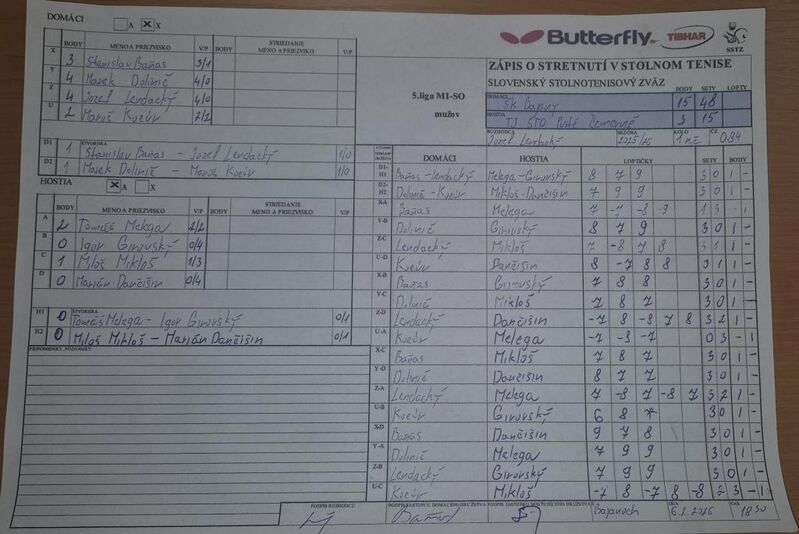 DOMÁCI A X
Butterfly TIBHAR SSTZ
BODY MENO A PRIEZVISKO V/P BODY STRIEDANIE MENO A PRIEZVISKO V/P
ZÁPIS O STRETNUTÍ V STOLNOM TENISE
SLOVENSKÝ STOLNOTENISOVÝ ZVÄZ
X 3 Stanislav Baňas 3/1
Y 4 Marek Dolinič 4/0
Z 4 Jozef Lendacký 4/0
U 2 Maroš Kocúr 2/2
5.liga MI-SO
mužov
BODY SETY LOPTY
DOMÁCI 15 48
HOSTIA TJ STO Pusté Čemerné 3 15
ROZHODCA Jozef Lendacký SEZÓNA 2025/26 KOLO ČZ 084
ŠTVORHRA
D1 1 Stanislav Baňas - Jozef Lendacký 1/0
D2 1 Marek Dolinič - Maroš Kocúr 1/0
HOSTIA A X
BODY MENO A PRIEZVISKO V/P BODY STRIEDANIE MENO A PRIEZVISKO V/P
A 2 Tomáš Melega 2/2
B 0 Igor Girovský 0/4
C 1 Miloš Mikloš 1/3
D 0 Marián Dančišin 0/4
ŠTVORHRA
H1 0 Tomáš Melega - Igor Girovský 0/1
H2 0 Miloš Mikloš - Marián Dančišin 0/1
PRIPOMIENKY, POZNÁMKY:
DOMÁCI HOSTIA LOPTIČKY SETY BODY
D1-H1 Baňas-Lendacký Melega-Girovský 8 7 9 3 0 1 -
D2-H2 Dolinič-Kocúr Mikloš-Dančišin 7 9 9 3 0 1 -
X-A Baňas Melega 7 -7 -8 -9 1 3 - 1
Y-B Dolinič Girovský 8 7 9 3 0 1 -
Z-C Lendacký Mikloš 7 -8 7 8 3 1 1 -
U-D Kocúr Dančišin 8 -7 8 8 3 1 1 -
X-B Baňas Girovský 7 8 8 3 0 1 -
Y-C Dolinič Mikloš 7 8 7 3 0 1 -
Z-D Lendacký Dančišin -7 8 -8 7 8 3 2 1 -
U-A Kocúr Melega -7 -8 -7 0 3 - 1
X-C Baňas Mikloš 7 8 7 3 0 1 -
Y-D Dolinič Dančišin 8 7 7 3 0 1 -
Z-A Lendacký Melega -7 8 -7 8 7 3 2 1 -
U-B Kocúr Girovský 6 8 3 0 1 -
X-D Baňas Dančišin 9 7 8 3 0 1 -
Y-A Dolinič Melega 7 9 9 3 0 1 -
Z-B Lendacký Girovský 7 9 9 3 0 1 -
U-C Kocúr Mikloš -7 8 -7 8 -8 2 3 - 1
PODPIS ROZHODCU PODPIS ZÁSTUPCU DOMÁCEHO DRUŽSTVA PODPIS ZÁSTUPCU HOSŤUJÚCEHO DRUŽSTVA V DŇA ČAS
6.2.2026 18 30